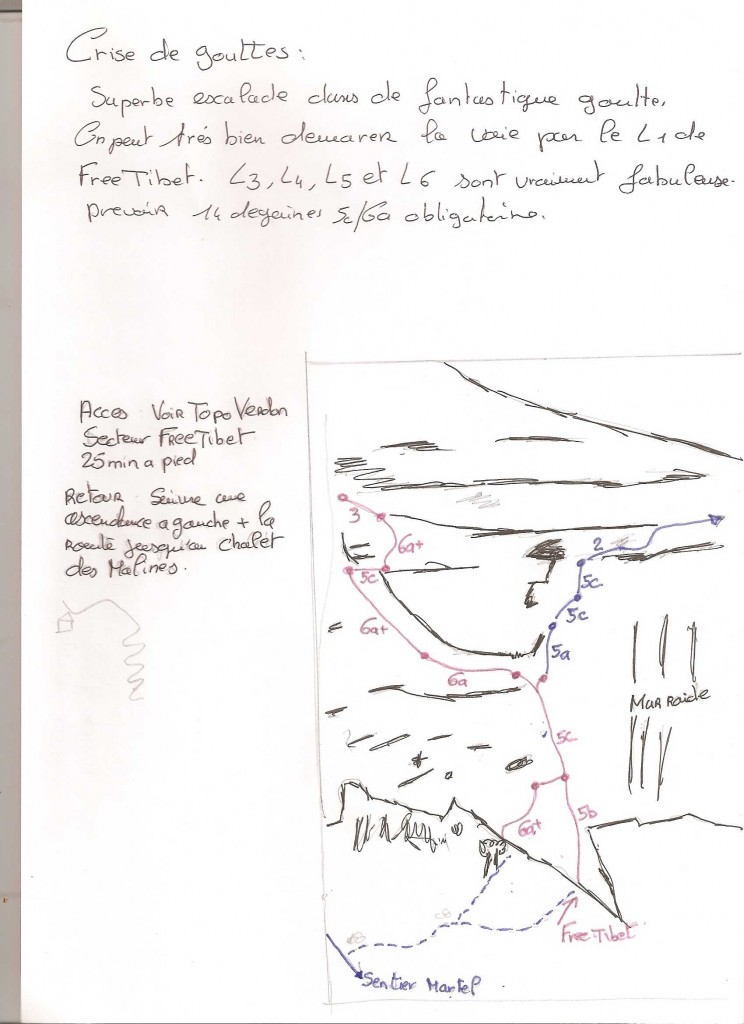 Crise de gouttes :
Superbe escalade dans de fantastique goutte.
On peut trés bien demarer la voie par le L1 de
Free Tibet. L3, L4, L5 et L6 sont vraiment fabuleuse.
prevoir 14 degaines 5c/6a obligatoire.
Acces : Voir Topo Verdon
Secteur Free Tibet
25 min a pied
Retour : Suivre une
ascendance a gauche + la
Route jusqu'au Chalet
des Malines.
3
6a+
5c
6a+
6a
2
5c
5c
5a
Mur Raide
5c
6a+
5b
Free Tibet
Sentier Martel